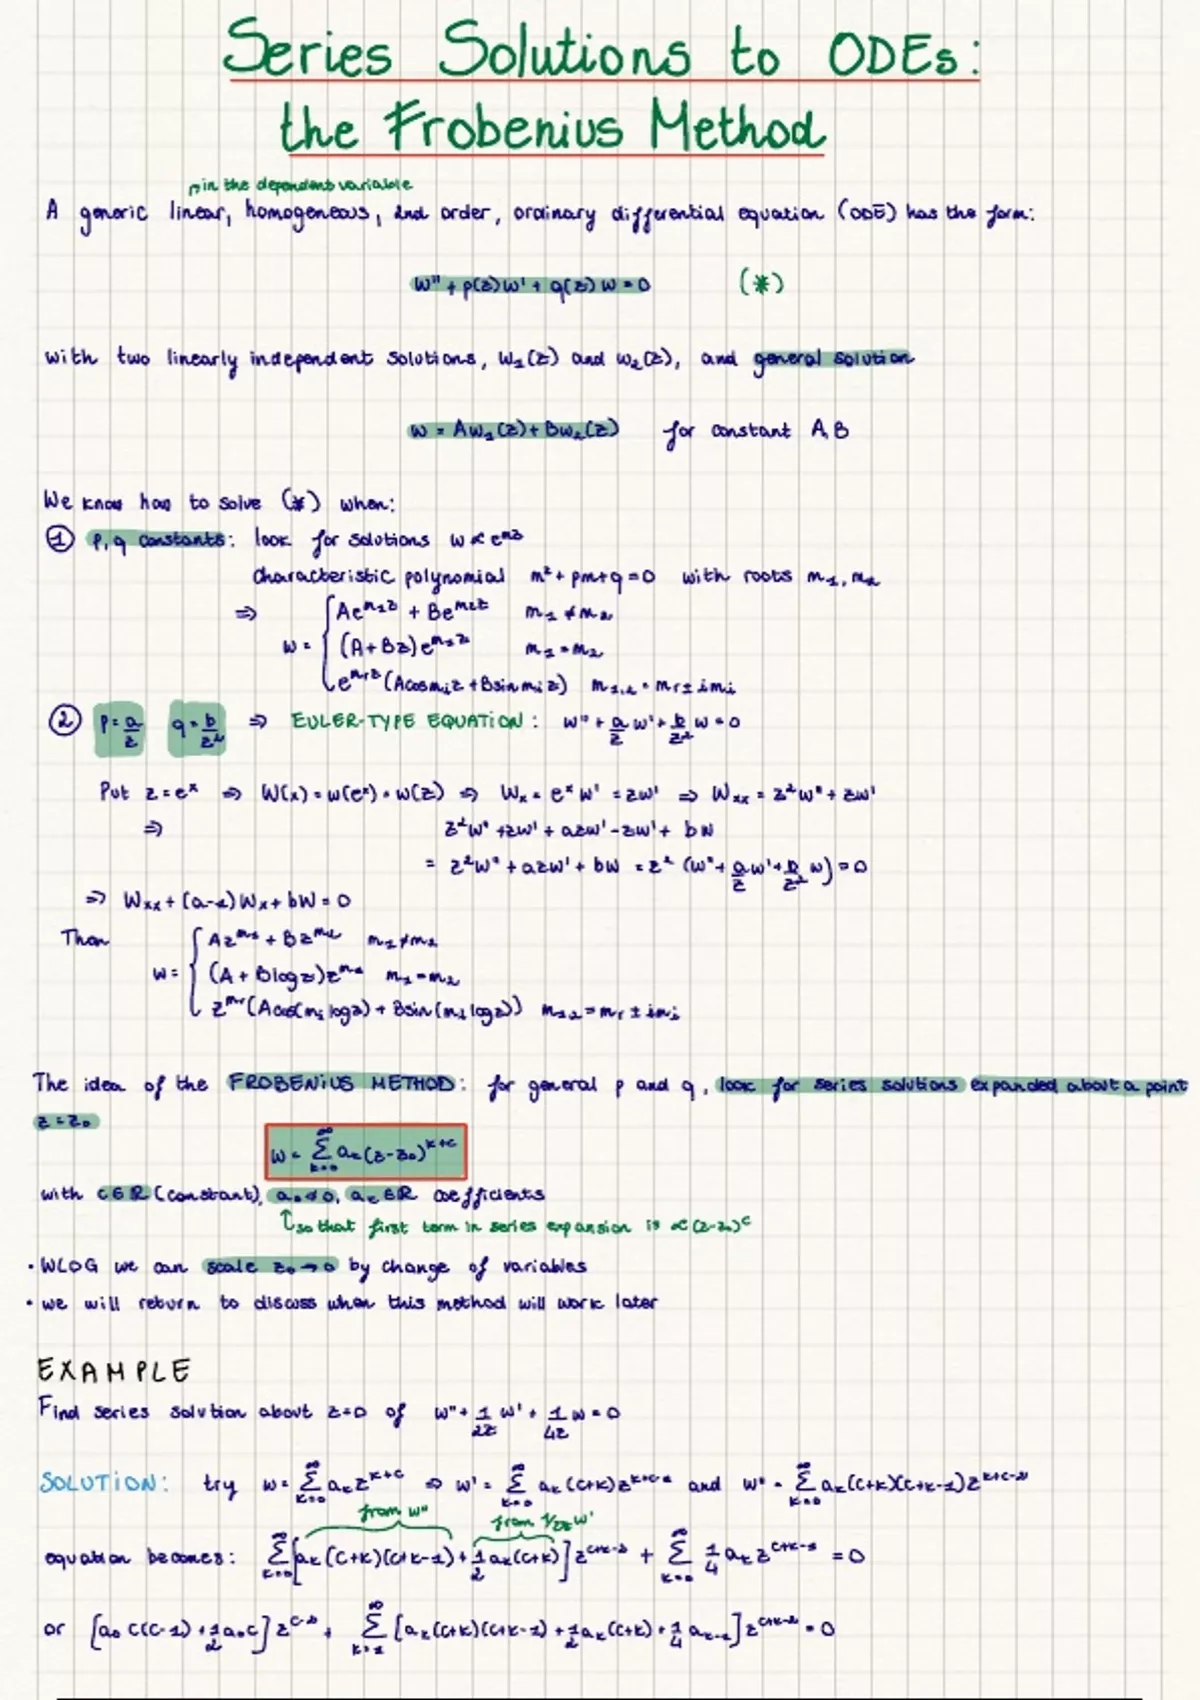 Series Solutions to ODEs:
the Frobenius Method
in the dependent variable
A generic linear, homogeneous, 2nd order, ordinary differential equation (ODE) has the form:
w'' + p(z)w' + q(z)w = 0 (*)
with two linearly independent solutions, w₁(z) and w₂(z), and general solution
w = Aw₁(z) + Bw₂(z) for constant A, B
We know how to solve (*) when:
① p, q constants: look for solutions w ∝ e^{mz}
characteristic polynomial m² + pm + q = 0 with roots m₁, m₂
⇒ { Ae^{m₁z} + Be^{m₂z} m₁ ≠ m₂
w = { (A + Bz)e^{m₁z} m₁ = m₂
{ e^{m_r z}(A cos m_i z + B sin m_i z) m₁,₂ = m_r ± i m_i
② p = a/z q = b/z² ⇒ EULER-TYPE EQUATION: w'' + a/z w' + b/z² w = 0
Put z = e^x ⇒ W(x) = w(e^x) = w(z) ⇒ W_x = e^x w' = zw' ⇒ W_xx = z²w'' + zw'
⇒ z²w'' + zw' + azw' - zw' + bw
= z²w'' + azw' + bw = z² (w'' + a/z w' + b/z² w) = 0
⇒ W_xx + (a-1)W_x + bW = 0
Then { Az^{m₁} + Bz^{m₂} m₁ ≠ m₂
w = { (A + B log z)z^{m₁} m₁ = m₂
{ z^{m_r}(A cos(m_i log z) + B sin(m_i log z)) m₁,₂ = m_r ± i m_i
The idea of the FROBENIUS METHOD: for general p and q, look for series solutions expanded about a point
z = z₀
w = ∑_{k=0}^∞ a_k (z-z₀)^{k+c}
with c∈R (constant), a₀≠0, a_k∈R coefficients
↑ so that first term in series expansion is ∝ (z-z₀)^c
• WLOG we can scale z₀→0 by change of variables
• we will return to discuss when this method will work later
EXAMPLE
Find series solution about z=0 of w'' + 1/2z w' + 1/4z w = 0
SOLUTION: try w = ∑_{k=0}^∞ a_k z^{k+c} ⇒ w' = ∑_{k=0}^∞ a_k (c+k) z^{k+c-1} and w'' = ∑_{k=0}^∞ a_k (c+k)(c+k-1) z^{k+c-2}
from w'' from 1/2z w'
equation becomes: ∑_{k=0}^∞ [a_k (c+k)(c+k-1) + 1/2 a_k (c+k)] z^{c+k-2} + ∑_{k=0}^∞ 1/4 a_k z^{c+k-1} = 0
or [a₀ c(c-1) + 1/2 a₀c] z^{c-2} + ∑_{k=1}^∞ [a_k (c+k)(c+k-1) + 1/2 a_k (c+k) + 1/4 a_{k-1}] z^{c+k-2} = 0